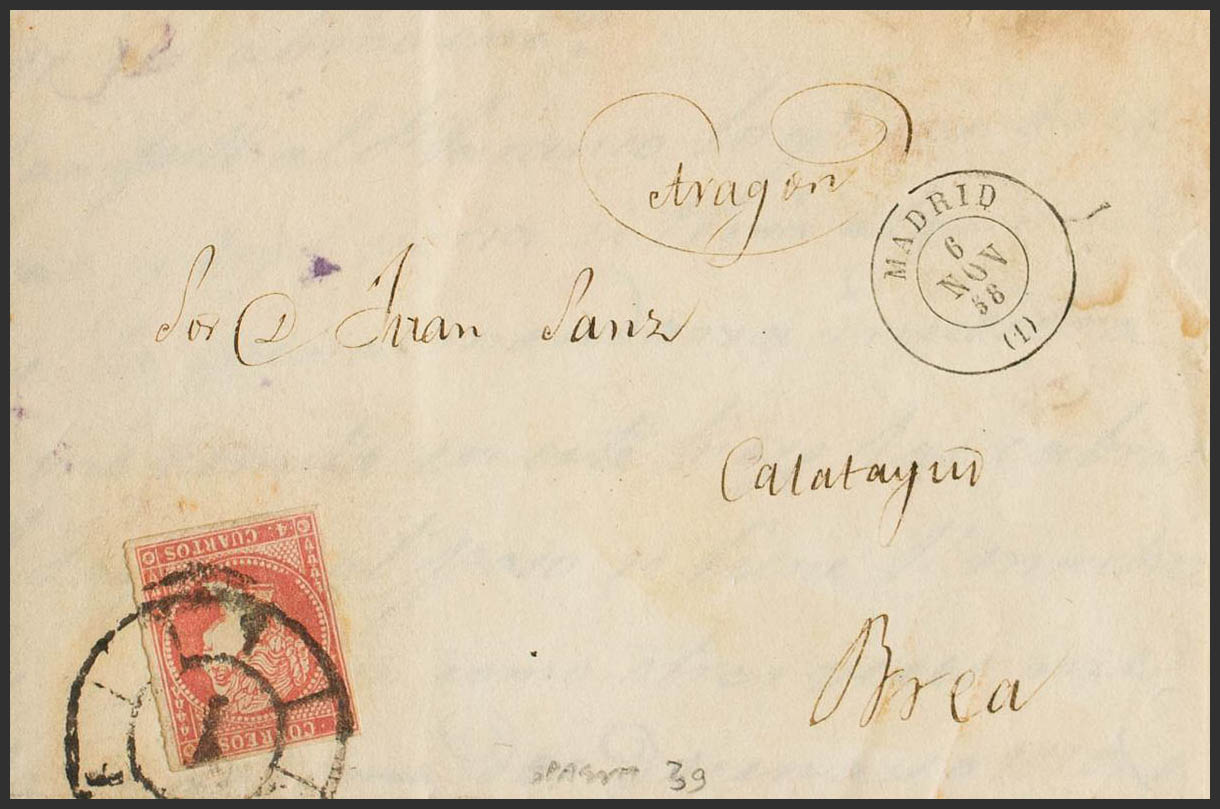 Aragon
MADRID
6
NOV
58
(1)
Sor D Juan Sanz
Calatayud
Brea
4. CUARTOS
CORREOS
1
39